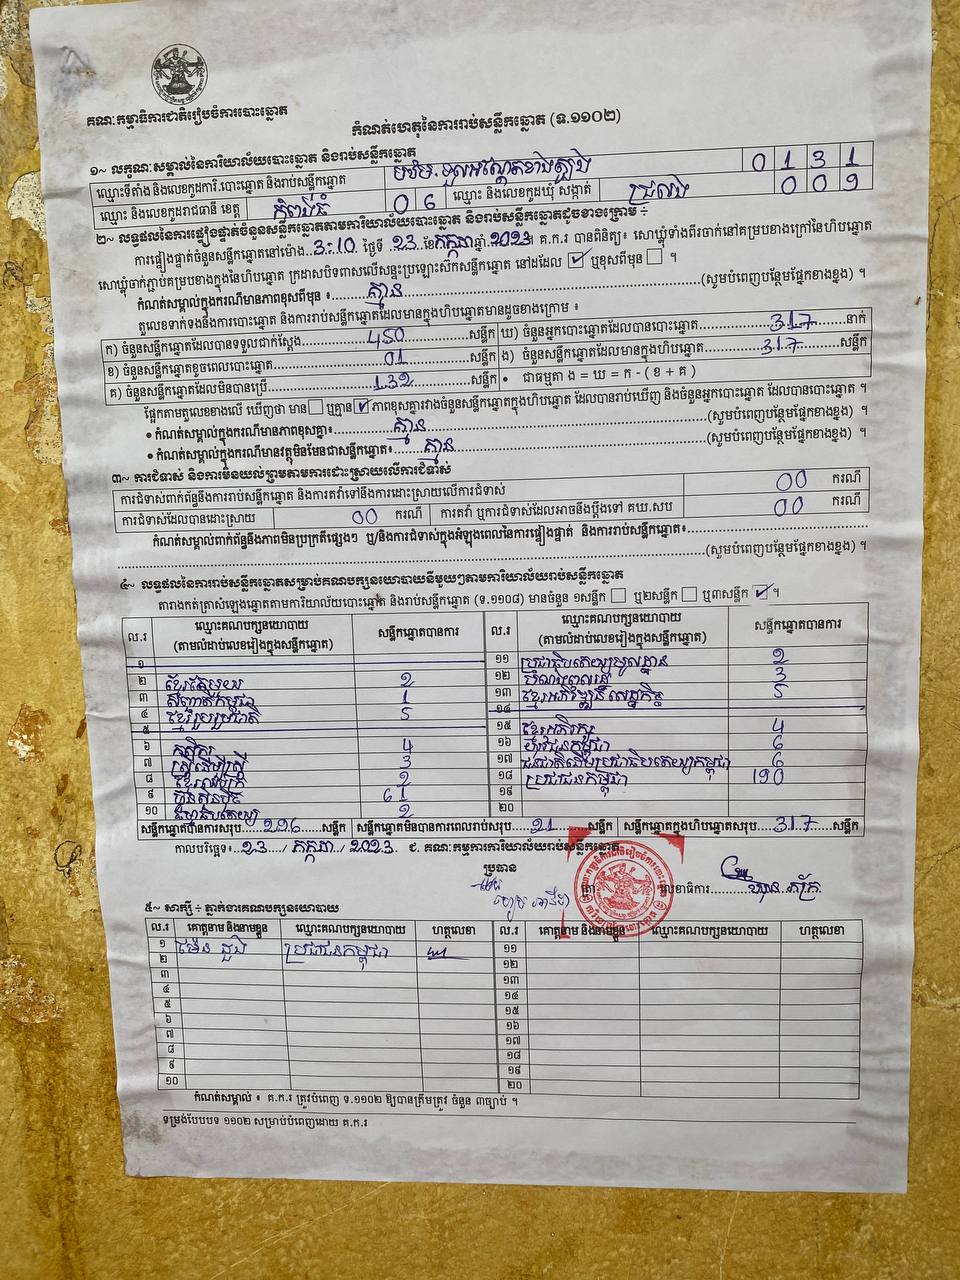 គណៈកម្មាធិការជាតិរៀបចំការបោះឆ្នោត
កំណត់ហេតុនៃការរាប់សន្លឹកឆ្នោត (ទ.១១០២)
១~ លក្ខណៈសម្គាល់នៃការិយាល័យបោះឆ្នោត និងរាប់សន្លឹកឆ្នោត
ឈ្មោះទីតាំង និងលេខកូដការិ.បោះឆ្នោត និងរាប់សន្លឹកឆ្នោត 0 1 3 1
ឈ្មោះ និងលេខកូដរាជធានី ខេត្ត កំពង់ធំ 0 6 ឈ្មោះ និងលេខកូដឃុំ សង្កាត់ 0 0 9
២~ លទ្ធផលនៃការផ្ទៀងផ្ទាត់ចំនួនសន្លឹកឆ្នោតតាមការិយាល័យបោះឆ្នោត និងរាប់សន្លឹកឆ្នោតដូចខាងក្រោម ÷
ការផ្ទៀងផ្ទាត់ចំនួនសន្លឹកឆ្នោតនៅម៉ោង 3:10 ថ្ងៃទី 23 ខែកក្កដាឆ្នាំ 2023 គ.ក.រ បានពិនិត្យ៖ សោឃ្លុំទាំងពីរចាក់នៅគម្របខាងក្រៅនៃហិបឆ្នោត
សោឃ្លុំចាក់ភ្ជាប់គម្របខាងក្នុងនៃហិបឆ្នោត ក្រដាសបិទពាសលើសន្ទះប្រឡោះស៊កសន្លឹកឆ្នោត នៅដដែល ✓ ឬខុសពីមុន ☐ ។
កំណត់សម្គាល់ក្នុងករណីមានភាពខុសពីមុន ៖ គ្មាន (សូមបំពេញបន្ថែមផ្នែកខាងខ្នង) ។
តួលេខទាក់ទងនឹងការបោះឆ្នោត និងការរាប់សន្លឹកឆ្នោតដែលមានក្នុងហិបឆ្នោតមានដូចខាងក្រោម ៖
ក) ចំនួនសន្លឹកឆ្នោតដែលបានទទួលជាក់ស្តែង 450 សន្លឹក ឃ) ចំនួនអ្នកបោះឆ្នោតដែលបានបោះឆ្នោត 317 នាក់
ខ) ចំនួនសន្លឹកឆ្នោតខូចពេលបោះឆ្នោត 01 សន្លឹក ង) ចំនួនសន្លឹកឆ្នោតដែលមានក្នុងហិបឆ្នោត 317 សន្លឹក
គ) ចំនួនសន្លឹកឆ្នោតដែលមិនបានប្រើ 132 សន្លឹក • ជាធម្មតា ង = ឃ = ក - ( ខ + គ )
ផ្អែកតាមតួលេខខាងលើ ឃើញថា មាន ☐ ឬគ្មាន ✓ ភាពខុសគ្នារវាងចំនួនសន្លឹកឆ្នោតក្នុងហិបឆ្នោត ដែលបានរាប់ឃើញ និងចំនួនអ្នកបោះឆ្នោត ដែលបានបោះឆ្នោត ។
• កំណត់សម្គាល់ក្នុងករណីមានភាពខុសគ្នា៖ គ្មាន (សូមបំពេញបន្ថែមផ្នែកខាងខ្នង) ។
• កំណត់សម្គាល់ក្នុងករណីមានវត្ថុមិនមែនជាសន្លឹកឆ្នោត៖ គ្មាន (សូមបំពេញបន្ថែមផ្នែកខាងខ្នង) ។
៣~ ការជំទាស់ និងការមិនយល់ព្រមតាមការដោះស្រាយលើការជំទាស់
ការជំទាស់ពាក់ព័ន្ធនឹងការរាប់សន្លឹកឆ្នោត និងការតវ៉ាទៅនឹងការដោះស្រាយលើការជំទាស់ 00 ករណី
ការជំទាស់ដែលបានដោះស្រាយ 00 ករណី ការតវ៉ា ឬការជំទាស់ដែលអាចនឹងប្តឹងទៅ គឃ.សប 00 ករណី
កំណត់សម្គាល់ពាក់ព័ន្ធនឹងភាពមិនប្រក្រតីផ្សេងៗ ឬ/និងការជំទាស់ក្នុងអំឡុងពេលនៃការផ្ទៀងផ្ទាត់ និងការរាប់សន្លឹកឆ្នោត៖
(សូមបំពេញបន្ថែមផ្នែកខាងខ្នង) ។
៤~ លទ្ធផលនៃការរាប់សន្លឹកឆ្នោតសម្រាប់គណបក្សនយោបាយនីមួយៗតាមការិយាល័យរាប់សន្លឹកឆ្នោត
តារាងកត់ត្រាសំឡេងឆ្នោតតាមការិយាល័យបោះឆ្នោត និងរាប់សន្លឹកឆ្នោត (ទ.១១០៨) មានចំនួន ១សន្លឹក ☐ ឬ២សន្លឹក ☐ ឬ៣សន្លឹក ✓ ។
ល.រ ឈ្មោះគណបក្សនយោបាយ (តាមលំដាប់លេខរៀងក្នុងសន្លឹកឆ្នោត) សន្លឹកឆ្នោតបានការ ល.រ ឈ្មោះគណបក្សនយោបាយ (តាមលំដាប់លេខរៀងក្នុងសន្លឹកឆ្នោត) សន្លឹកឆ្នោតបានការ
១ ១១ ប្រជាធិបតេយ្យមូលដ្ឋាន 2
២ ខ្មែរតែមួយ 2 ១២ 3
៣ សញ្ជាតិកម្ពុជា 1 ១៣ ខ្មែរអភិវឌ្ឍន៍សេដ្ឋកិច្ច 5
៤ ខ្មែររួបរួមជាតិ 5 ១៤
៥ ១៥ ខ្មែរអភិរក្ស 4
៦ កសិករ 4 ១៦ យុវជនកម្ពុជា 6
៧ ស្ត្រីដើម្បីស្ត្រី 3 ១៧ ជនជាតិដើមប្រជាធិបតេយ្យកម្ពុជា 6
៨ 2 ១៨ ប្រជាជនកម្ពុជា 190
៩ ហ៊្វុនស៊ិនប៉ិច 61 ១៩
១០ ធម្មាធិបតេយ្យ 2 ២០
សន្លឹកឆ្នោតបានការសរុប 296 សន្លឹក សន្លឹកឆ្នោតមិនបានការពេលរាប់សរុប 21 សន្លឹក សន្លឹកឆ្នោតក្នុងហិបឆ្នោតសរុប 317 សន្លឹក
កាលបរិច្ឆេទ៖ 23 / កក្កដា / 2023 ជ. គណៈកម្មការការិយាល័យរាប់សន្លឹកឆ្នោត
ប្រធាន
លេខាធិការ
៥~ សាក្សី ÷ ភ្នាក់ងារគណបក្សនយោបាយ
ល.រ គោត្តនាម និងនាមខ្លួន ឈ្មោះគណបក្សនយោបាយ ហត្ថលេខា ល.រ គោត្តនាម និងនាមខ្លួន ឈ្មោះគណបក្សនយោបាយ ហត្ថលេខា
១ ម៉ែន ជួង ប្រជាជនកម្ពុជា ១១
២ ១២
៣ ១៣
៤ ១៤
៥ ១៥
៦ ១៦
៧ ១៧
៨ ១៨
៩ ១៩
១០ ២០
កំណត់សម្គាល់ ៖ គ.ក.រ ត្រូវបំពេញ ទ.១១០២ ឱ្យបានត្រឹមត្រូវ ចំនួន ៣ច្បាប់ ។
ទម្រង់បែបបទ ១១០២ សម្រាប់បំពេញដោយ គ.ក.រ